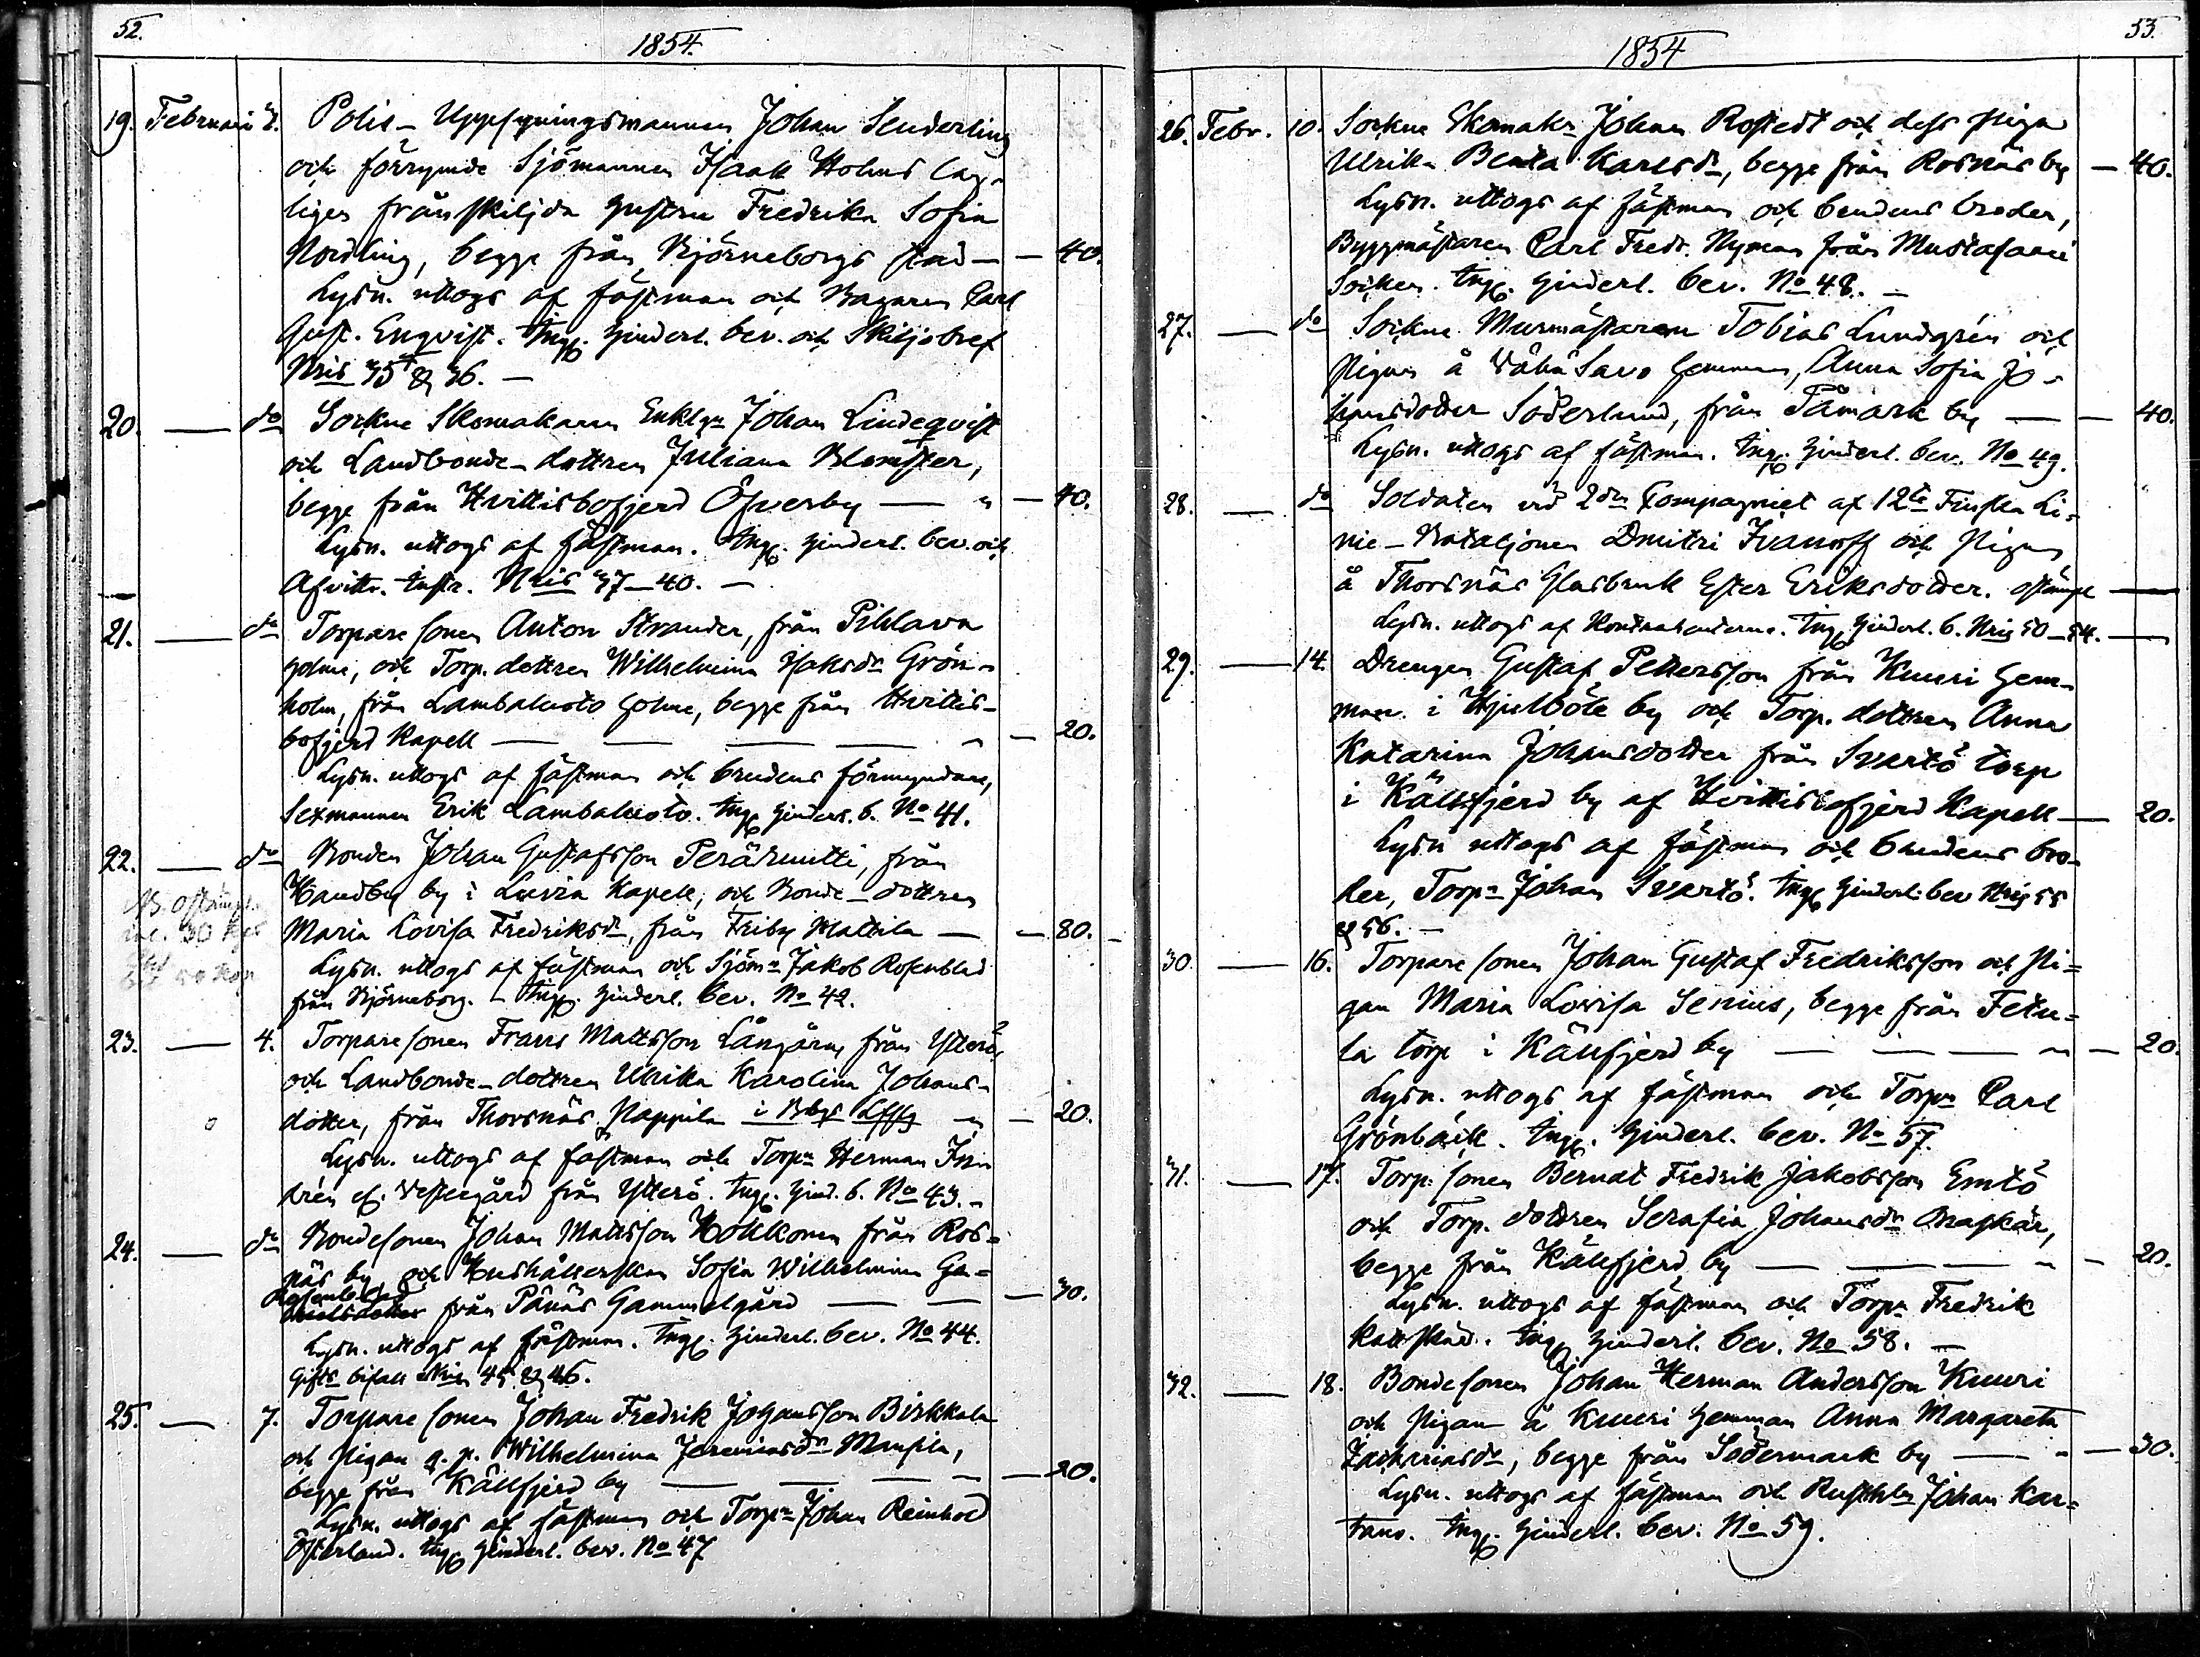 52.
1854.
19. Februarii 2. Polis-Uppsyningsmannen Johan Senderling
och förrymde Sjömannen Isaak Holms lag-
ligen frånskiljda hustru Fredrika Sofia
Nordling, begge från Björneborgs stad — — 40.
Lysn. uttogs af fästman och Bagaren Carl
Gust. Enqvist. Ingg. hinderl. bev. och Skiljobref
Nris 35 & 36. —
20. — do Sockne Skomakaren Enkl:n Johan Lindeqvist
och Landbonde-dottren Juliana Blomster,
begge från Hvittisbofjerd Öfverby — " — 40.
Lysn. uttogs af fästman. Ingg. hinderl. bev. och
Afvittr. Instr. Nris 37–40. —
21. — do Torpare sonen Anton Strander, från Pihlava
holme, och Torp. dottren Wilhelmina Isaksdr Grön-
holm, från Lambaluoto holme, begge från Hvittis-
bofjerd Kapell — — — — " — 20.
Lysn. uttogs af fästman och brudens förmyndare,
Sexmannen Erik Lambaluoto. Ingg. hinderl. b. No 41.
22. — do Bonden Johan Gustafsson Peräkuitti, från
by i Luvia Kapell, och Bonde-dottren
Maria Lovisa Fredriksdr, från Friby Mattila — — 80. —
Lysn. uttogs af fästman och Sjöm:n Jakob Rosenblad
från Björneborg. — Ingg. hinderl. bev. No 42.
23. — 4. Torpare sonen Frans Mattsson Långärm från Ytterö
och Landbonde-dottren Ulrika Karolina Johans-
dotter, från Thorsnäs Pappila i " — 20.
Lysn. uttogs af fästman och Torp:n Herman
från Ytterö. Ingg. hind. b. No 43. —
24. — do Bondesonen Johan Mattsson Hohkonen från Ros-
näs by, och Hushållerskan Sofia Wilhelmina
från Pänäs Gammelgård — — — 30.
Lysn. uttogs af fästman. Ingg. hinderl. bev. No 44.
Gifto bifall Nris 45 & 46.
25. — 7. Torpare sonen Johan Fredrik Johansson Birkkala
och Pigan q. p. Wilhelmina Jeremiasdr
begge från Källfjerd by — — — " — 20.
Lysn. uttogs af fästman och Torp:n Johan Reinhold
Österland. Ingg. hinderl. bev. No 47
53.
1854
26. Febr. 10. Sockne Skomak:n Johan Rostedt och dess Piga
Ulrika Beata Karlsdr, begge från Rosnäs by — 40.
Lysn. uttogs af fästman och brudens broder,
Byggmästaren Carl Fredr. Nyman från Mustasaari
Socken. Ingg. hinderl. bev. No 48. —
27. — do Sockne Murmästaren Tobias Lundgrén och
Pigan å Vähä Savo hemman, Anna Sofia Jo-
hansdotter Söderlund, från Tåmark by — — 40.
Lysn. uttogs af fästman. Ingg. hinderl. bev. No 49.
28. — do Soldaten vid 2dra Compagniet af 12te Finska Li-
nie-Bataljonen Dmitri Ivanoff och Pigan
å Thorsnäs Glasbruk Ester Eriksdotter. —
Lysn. uttogs af Kontrahenterne. Ingg. hinderl. b. Nris 50–54. —
29. — 14. Drengen Gustaf Pettersson från Kuuri hem-
man i Hjulböle by och Torp. dottren Anna
Katarina Johansdotter från Svartö torp
i Källfjerd by af Hvittisbofjerd Kapell — 20.
Lysn uttogs af fästman och brudens bro-
der, Torp:n Johan Svartö. Ingg. hinderl. bev Nris 55
& 56. —
30. — 16. Torpare sonen Johan Gustaf Fredriksson och Pi-
gan Maria Lovisa Senius, begge från Fetu-
la torp i Källfjerd by — — — " — 20.
Lysn. uttogs af fästman och Torp:n Carl
Grönbäck. Ingg. hinderl. bev. No 57.
31. — 17. Torp. sonen Berndt Fredrik Jakobsson Emtö
och Torp. dottren Serafia Johansdr
begge från Källfjerd by — — — " — 20.
Lysn. uttogs af fästman och Torp:n Fredrik
Ingg. hinderl. bev. No 58. —
32. — 18. Bondesonen Johan Herman Andersson Kuuri
och Pigan å Kuuri hemman Anna Margareta
Zachariasdr, begge från Södermark by — " — 30.
Lysn. uttogs af fästman och Rusth:n Johan Kar-
tano. Ingg. hinderl. bev. No 59.